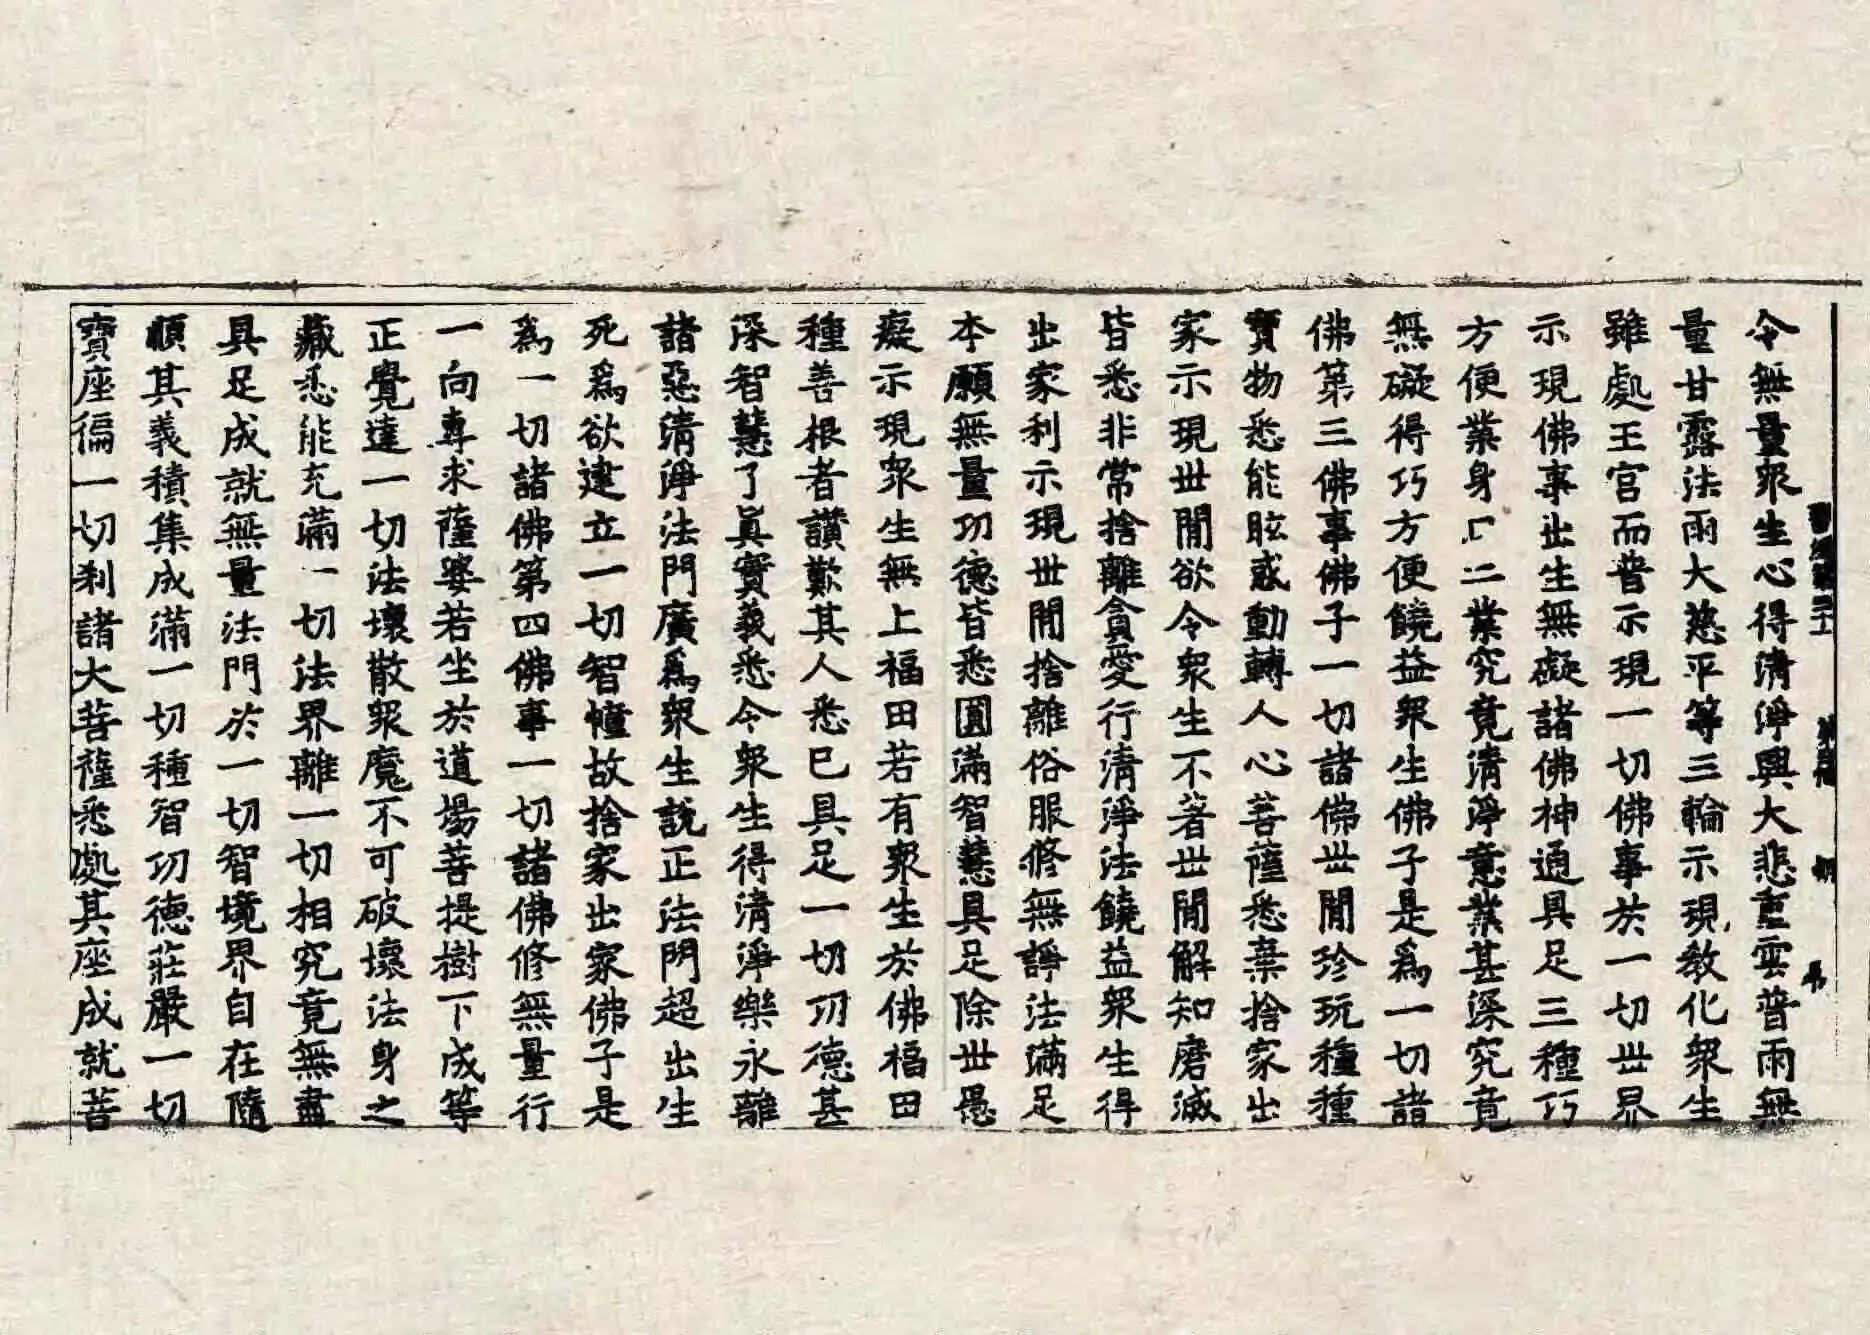 令無量眾生心得清淨興大悲重雲普雨無
量甘露法雨大慈平等三輪示現教化眾生
雖處王宮而普示現一切佛事於一切世界
示現佛事出生無礙諸佛神通具足三種巧
方便業身口二業究竟清淨意業甚深究竟
無礙得巧方便饒益眾生佛子是為一切諸
佛第三佛事佛子一切諸佛世間珍玩種種
寶物悉能眩惑動轉人心菩薩悉棄捨家出
家示現世間欲令眾生不著世間解知磨滅
皆悉非常捨離貪愛行清淨法饒益眾生得
出家利示現世間捨離俗服修無諍法滿足
本願無量功德皆悉圓滿智慧具足除世愚
癡示現眾生無上福田若有眾生於佛福田
種善根者讚歎其人悉已具足一切功德甚
深智慧了真實義悉令眾生得清淨樂永離
諸惡清淨法門廣為眾生說正法門超出生
死為欲建立一切智幢故捨家出家佛子是
為一切諸佛第四佛事一切諸佛修無量行
一向專求薩婆若坐於道場菩提樹下成等
正覺達一切法壞散眾魔不可破壞法身之
藏悉能充滿一切法界離一切相究竟無盡
具足成就無量法門於一切智境界自在隨
順其義積集成滿一切種智功德莊嚴一切
寶座徧一切剎諸大菩薩悉處其座成就菩